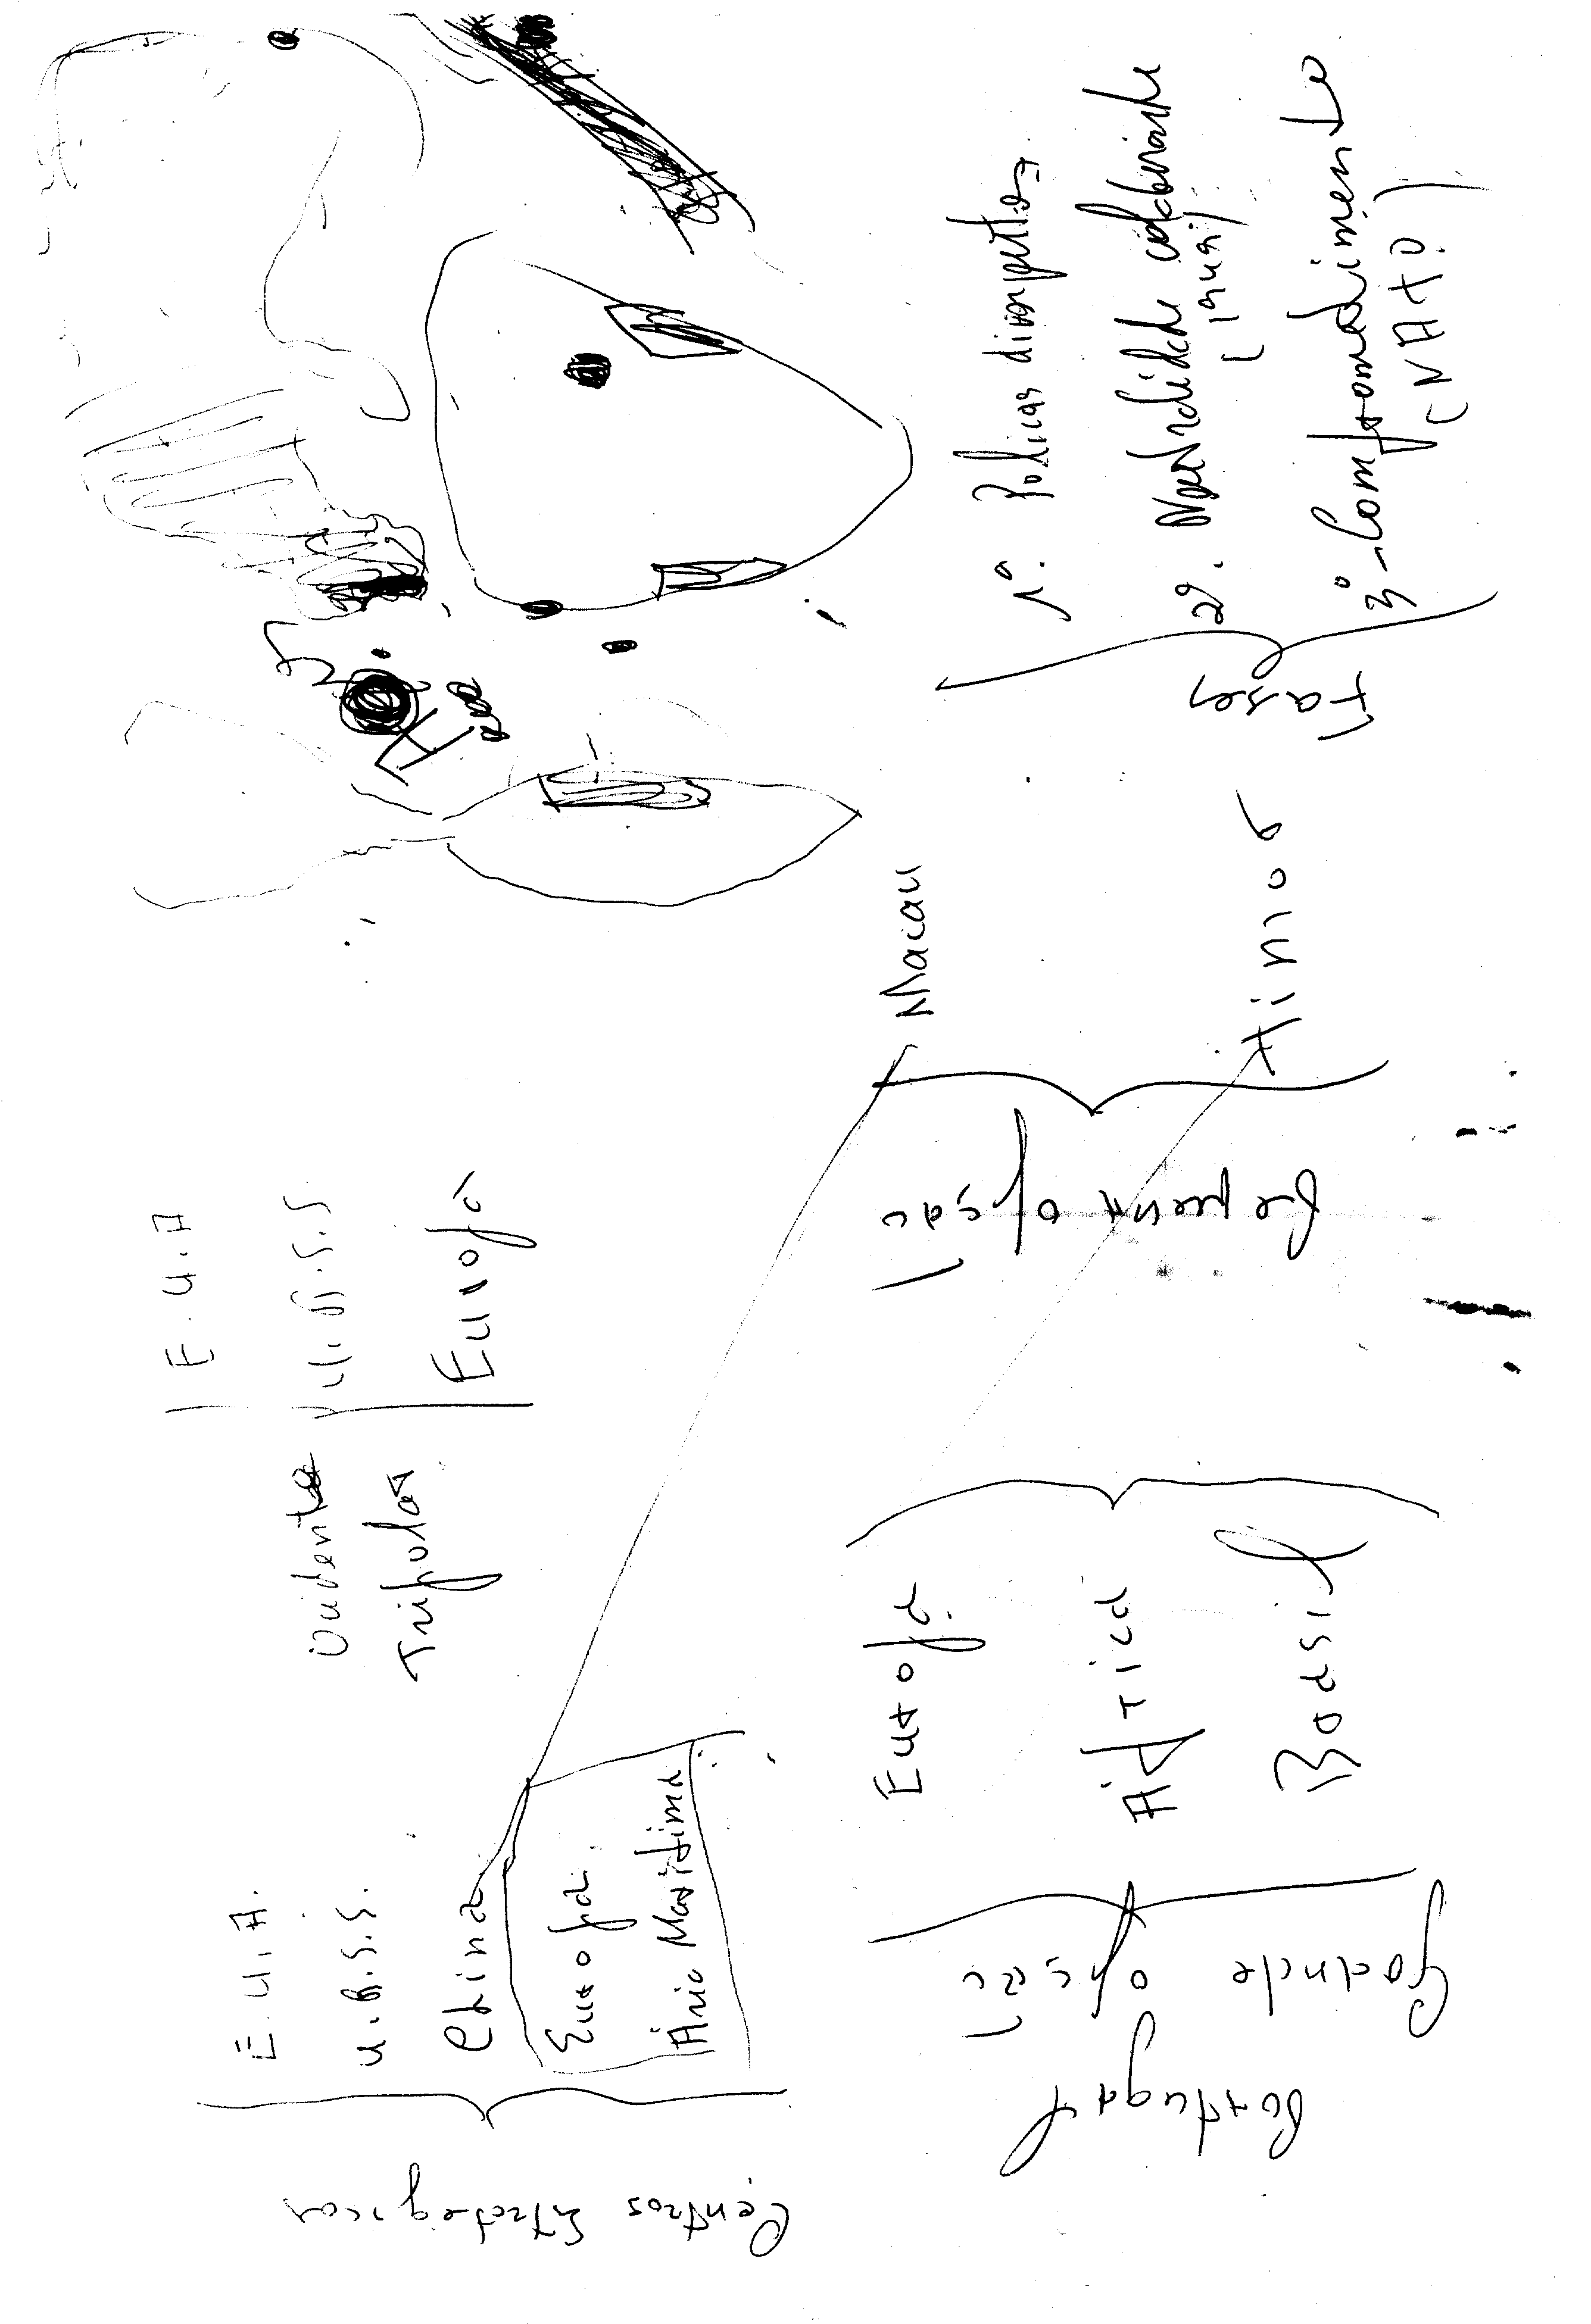 Centros Estrategicos
E.U.A.
U.R.S.S.
China
Europa
Ásia Maritima
Ocidente
Tripolar
E.U.A
U.R.S.S
Europa
Portugal
Grande
opção
Europa
Africa
Brasil
Pequena opção
Macau
Timor
Fases
1ª.
2ª. Neutralidade colaborante
3º - Comprometimento
(NATO)